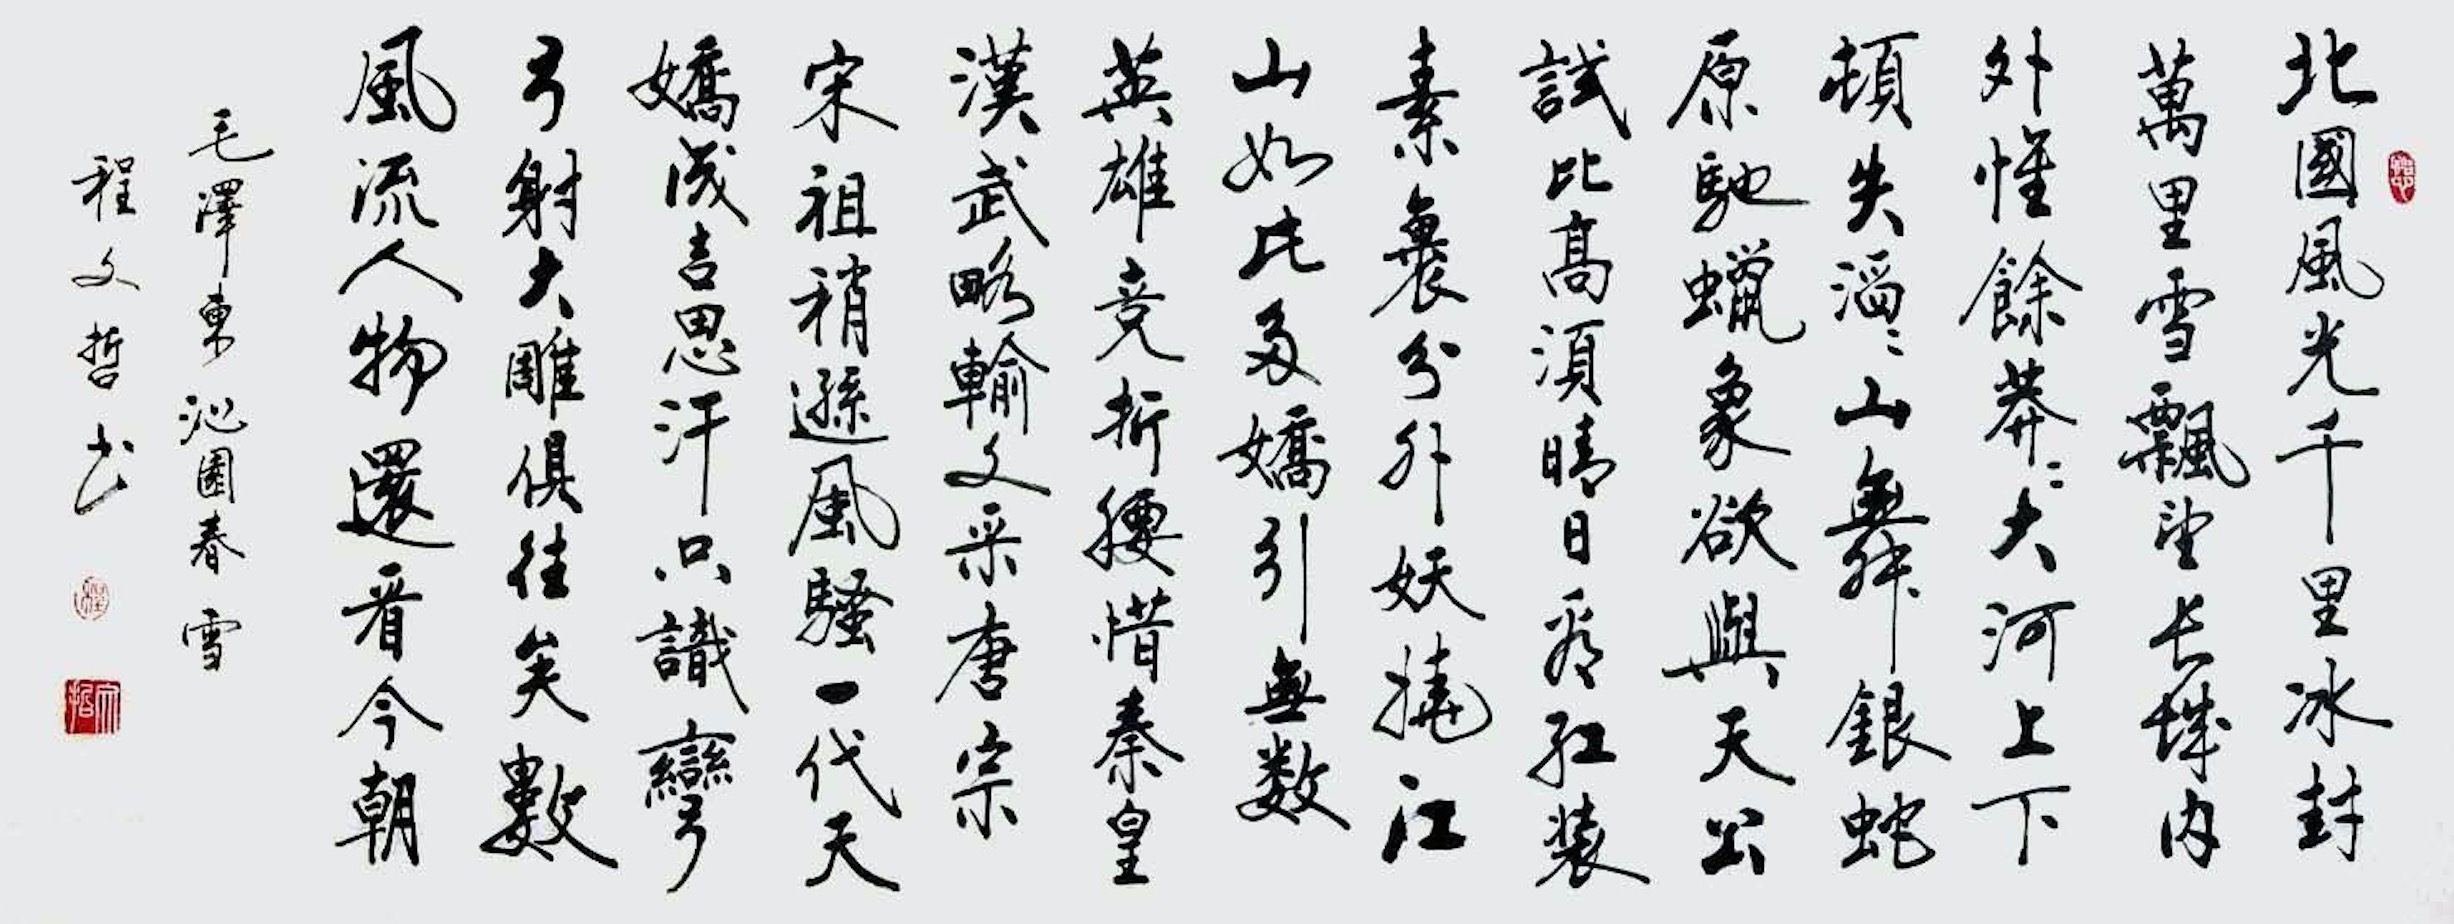 北國風光千里冰封
萬里雪飄望长城内
外惟餘莽〻大河上下
頓失滔〻山舞銀蛇
原馳蠟象欲與天公
試比高須晴日看红装
素裹分外妖撓江
山如此多嬌引無数
英雄竞折腰惜秦皇
漢武略輸文采唐宗
宋祖稍遜風騷一代天
嬌成吉思汗只識彎
弓射大雕俱往矣數
風流人物還看今朝
毛澤東 沁園春 雪
程文哲书
程
文哲